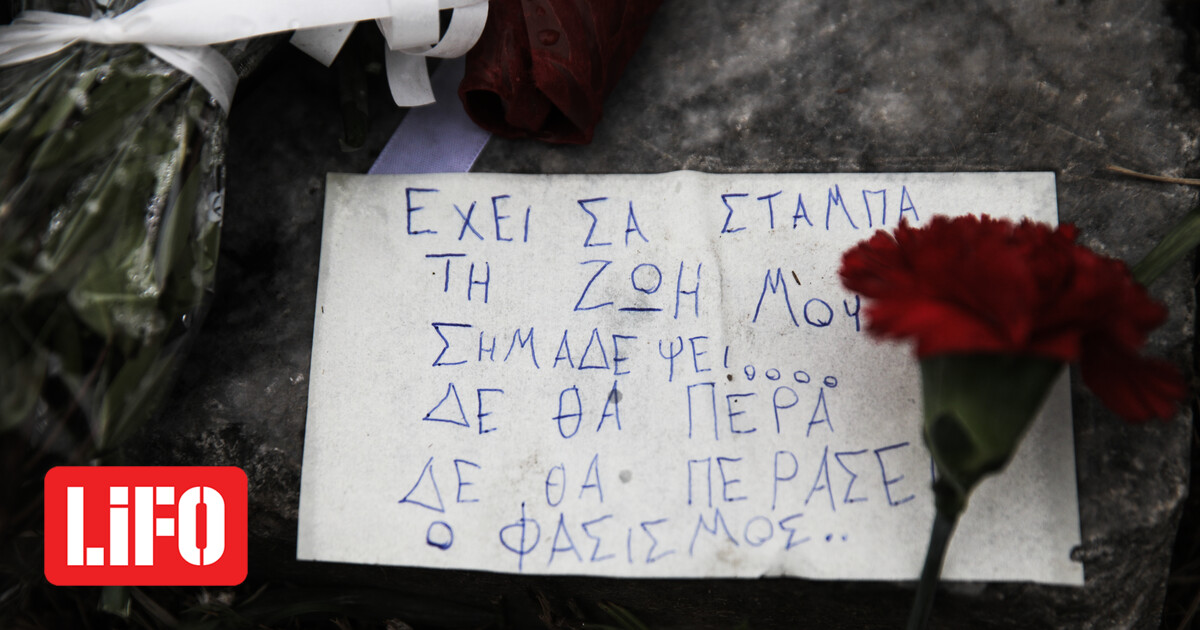 ΕΧΕΙ ΣΑ ΣΤΑΜΠΑ
ΤΗ ΖΩΗ ΜΟΥ
ΣΗΜΑΔΕΨΕΙ....
ΔΕ ΘΑ ΠΕΡΑ
ΔΕ ΘΑ ΠΕΡΑΣΕΙ
Ο ΦΑΣΙΣΜΟΣ..
LiFO